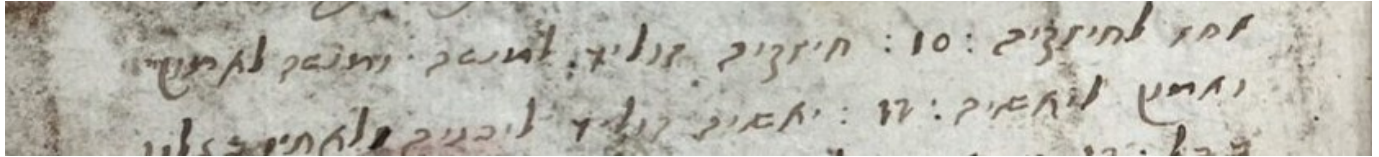 אחז לחיזקיה : 10 : חיזקיה הוליד למנשה · ומנשה לאמון
ואמון ליאשיה : 11 : יאשיה הוליד ליכניה ולאחיו בגלות